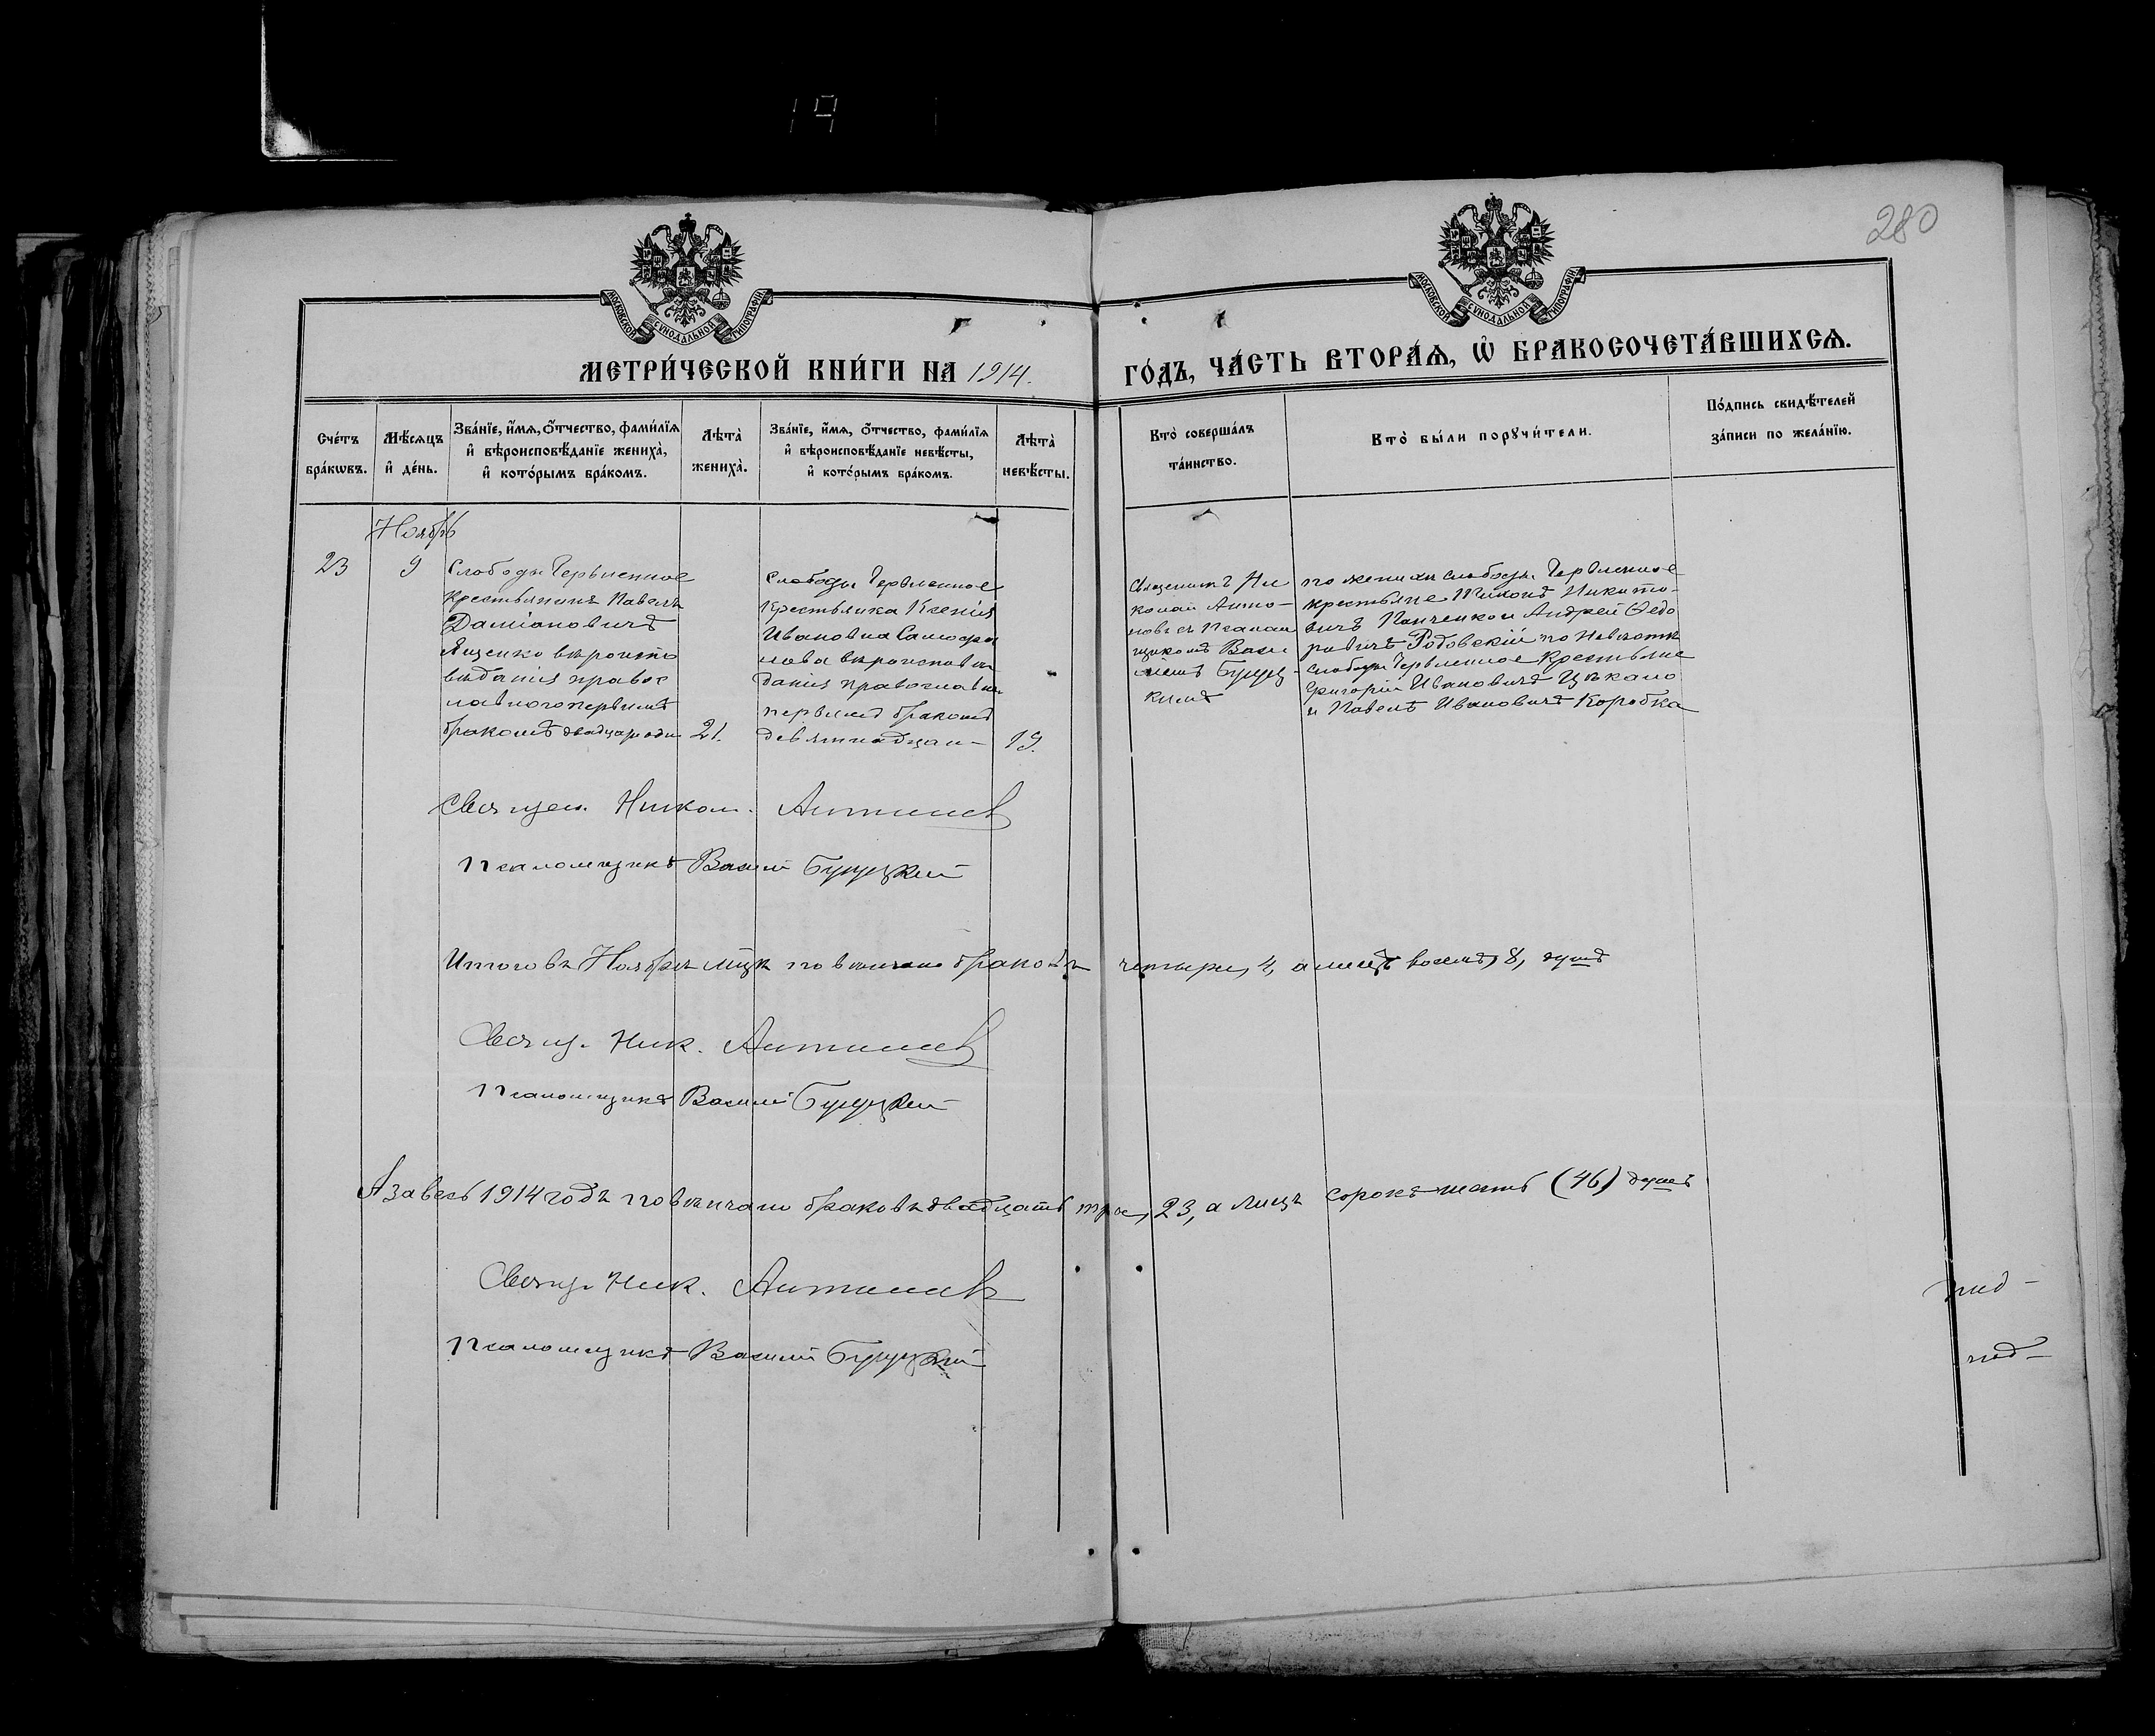 280
МОСКОВСКОЙ СѴНОДАЛЬНОЙ ТИПОГРАФІИ
МОСКОВСКОЙ СѴНОДАЛЬНОЙ ТИПОГРАФІИ
МЕТРИ́ЧЕСКОЙ КНИ́ГИ НА 1914. ГО́ДЪ, ЧА́СТЬ ВТОРА́Ѧ, Ѽ БРАКОСОЧЕТА́ВШИХСѦ.
Сче́тъ
бра́кѡвъ.
Мѣ́сѧцъ
и҆ де́нь.
Зва́нїе, и҆́мѧ, ѻ҆́тчество, фами́лїѧ
и҆ вѣроисповѣ́данїе жениха̀,
и҆ кото́рымъ бра́комъ.
Лѣ́та
жениха̀.
Зва́нїе, и҆́мѧ, ѻ҆́тчество, фами́лїѧ
и҆ вѣроисповѣ́данїе невѣ́сты,
и҆ кото́рымъ бра́комъ.
Лѣ́та
невѣ́сты.
Кто̀ соверша́лъ
та́инство.
Кто̀ бы́ли порꙋчи́тели.
По́дпись свидѣ́телей
за́писи по жела́нїю.
Ноябрь
23
9
Слободы Червленное
крестьянинъ Павелъ
Даміановичъ
Ященко вѣроиспо
вѣданія правос
лавного первымъ
бракомъ
21.
Слободы Червленное
крестьянка Ксенія
Ивановна
вѣроисповѣ
данія православна
первымъ бракомъ
девятнадцати
19.
Священникъ Ни
колай Анто-
новъ съ Псалом
щикомъ Васи
ліемъ
кимъ
по женихи слободы Червленное
крестьяне Тихонъ Никито-
вичъ Панченко и Андрей Ѳедо
ровичъ Родовскій по невѣстѣ
слободы Червленное крестьяне
Григорій Ивановичъ Цѣкало
и Павелъ Ивановичъ Коробка
Священ. Никол.
Псаломщикъ Василій
Итого въ Ноябрѣ мцѣ повѣнчано браковъ четыре, 4, а лицъ восемь, 8, душъ
Свящ. Ник.
Псаломщикъ Василій
А за весь 1914 годъ повѣнчано браковъ двадцать три, 23, а лицъ сорокъ шесть (46) душъ
Свящ. Ник.
Псаломщикъ Василій